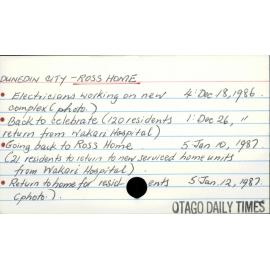 DUNEDIN CITY - ROSS HOME
• Electricians working on new 4: Dec 18, 1986.
complex (photo.)
• Back to celebrate (120 residents 1: Dec 26, "
return from Wakari Hospital)
• Going back to Ross Home. 5 Jan 10, 1987.
(21 residents to return to new serviced home units
from Wakari Hospital)
• Return to home for resid ents 5 Jan. 12, 1987.
(photo).
OTAGO DAILY TIMES